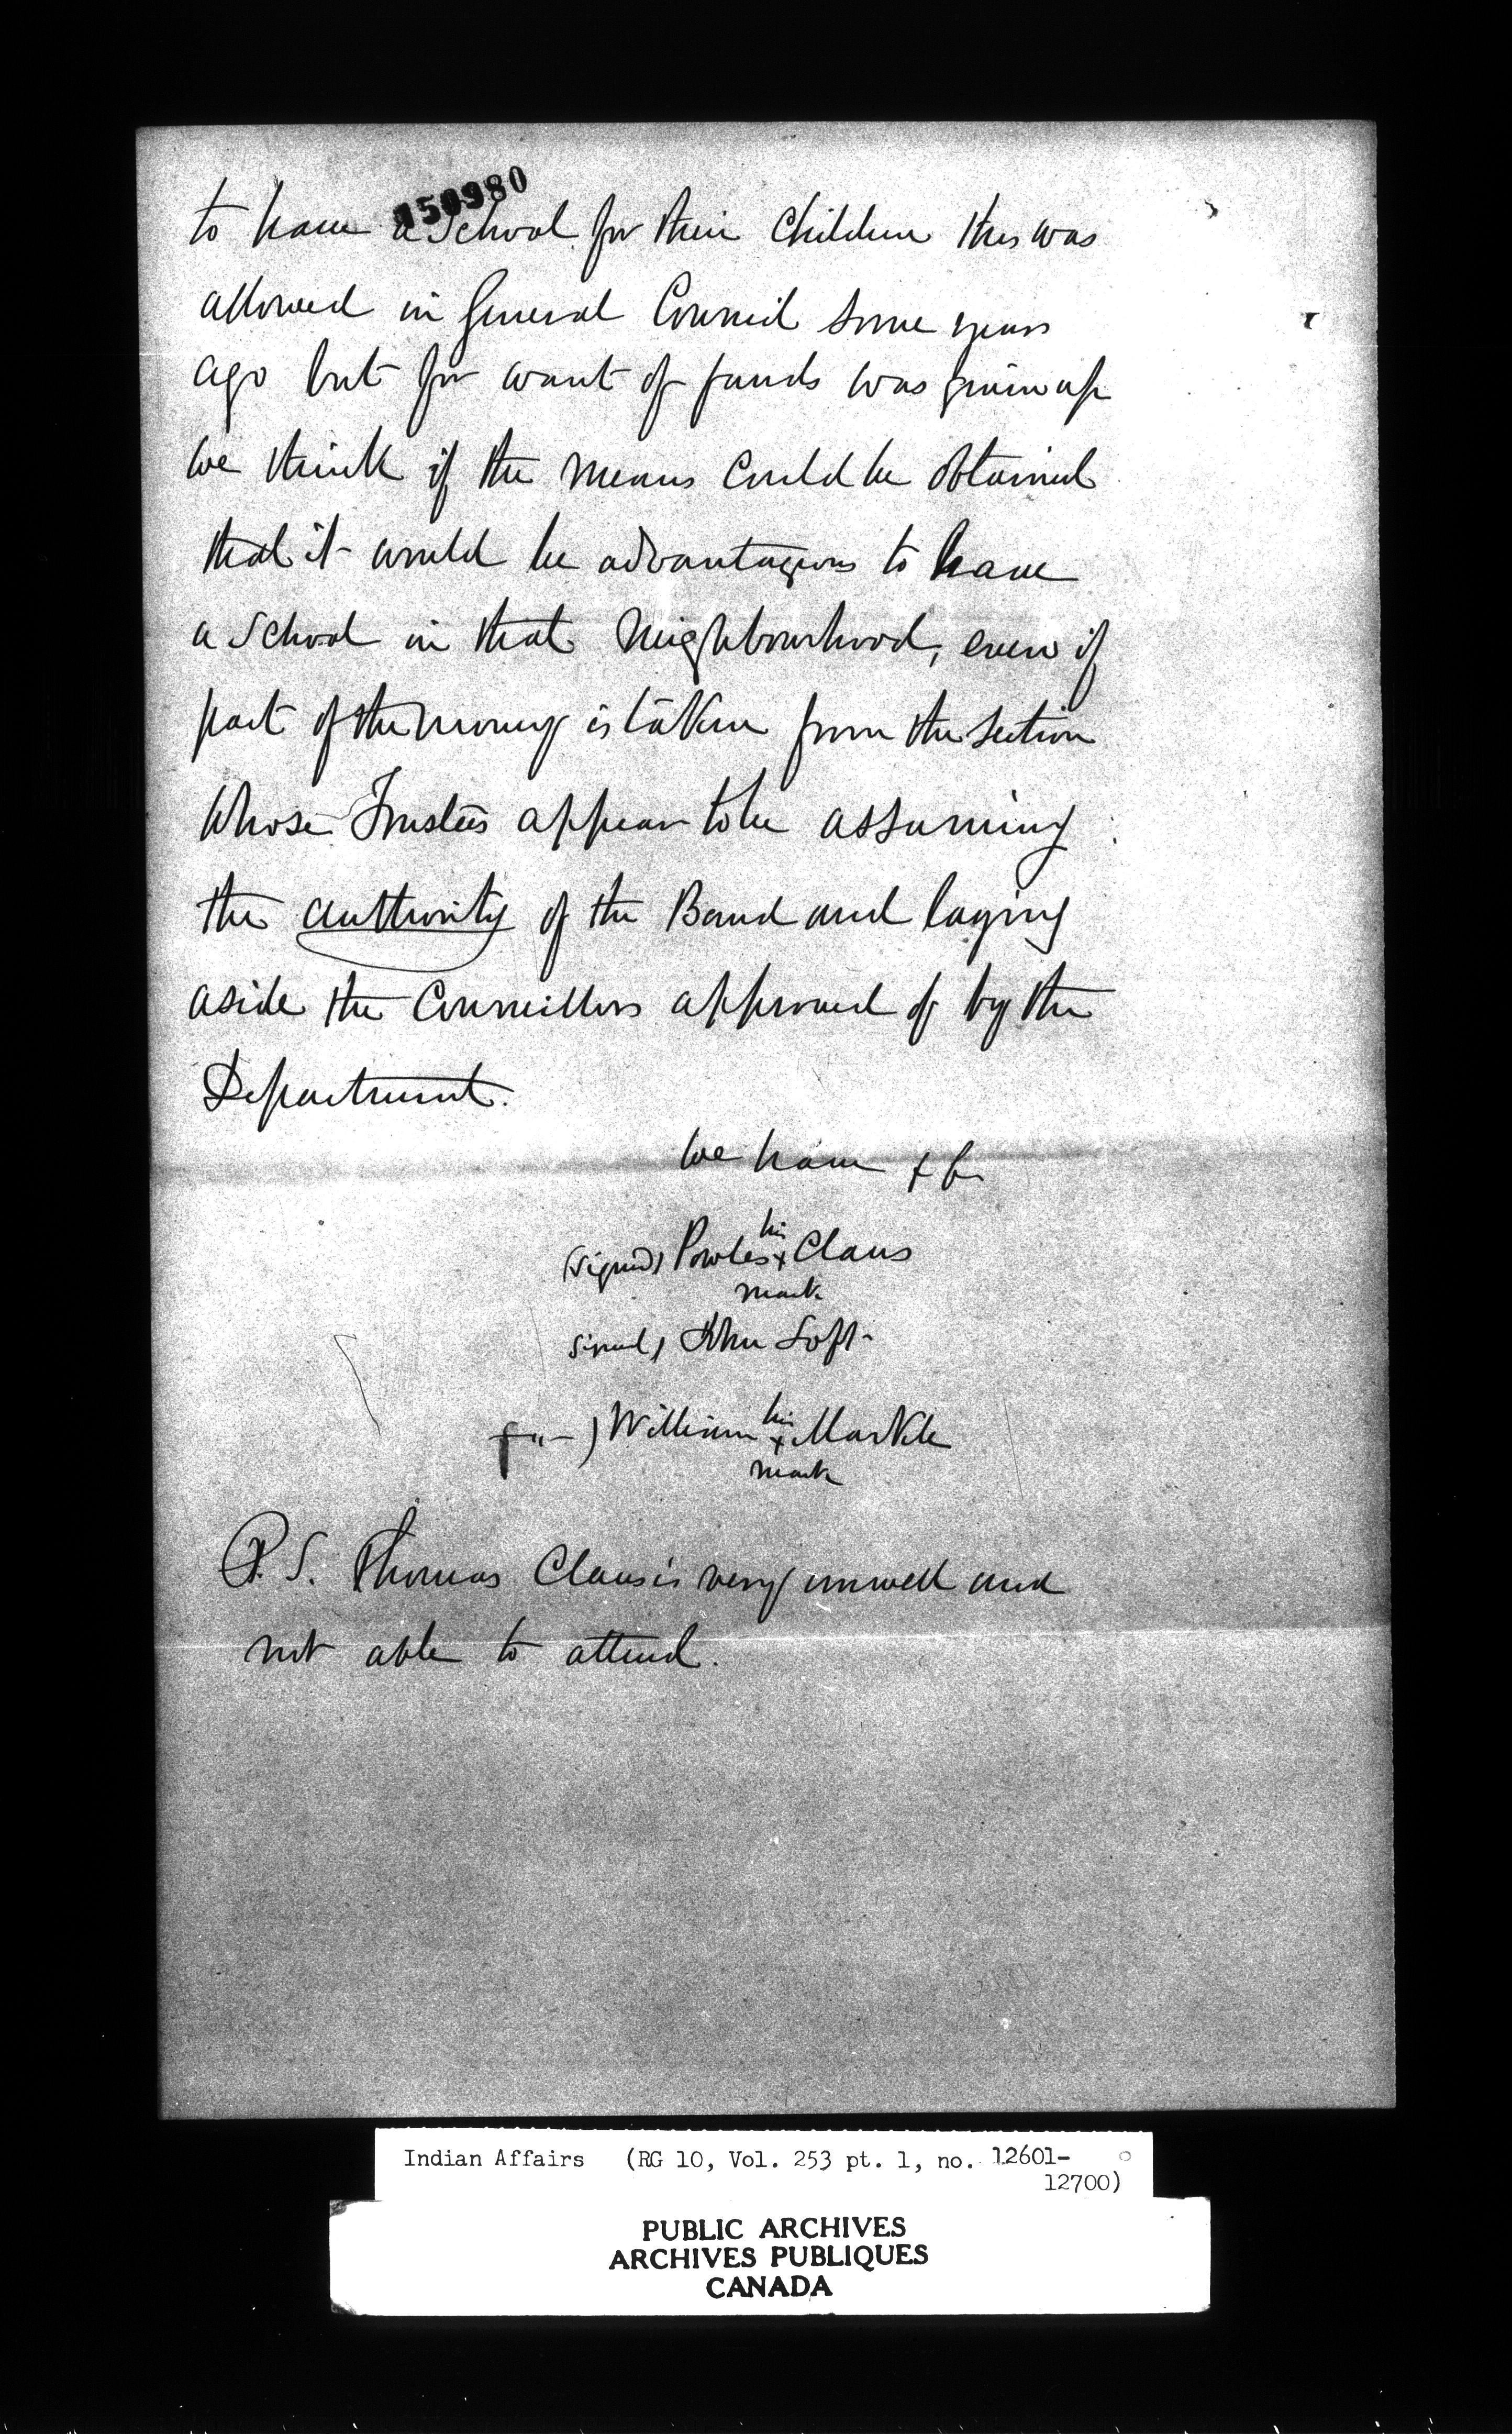 150980
to have a School for their Children this was
allowed in General Council some years
ago but for want of funds was given up
we think if the means could be obtained
that it would be advantageous to have
a School in that Neighbourhood, even if
part of the money is taken from the section
whose Trustees appear to be assuming
the authority of the Band and laying
aside the Councillors approved of by the
Department.
We have &c
his
(signed) Powles x Claus
mark
signed) John Loft
his
") William x Markle
mark
P.S. Thomas Claus is very unwell and
not able to attend.
Indian Affairs (RG 10, Vol. 253 pt. 1, no. 12601-
12700)
PUBLIC ARCHIVES
ARCHIVES PUBLIQUES
CANADA